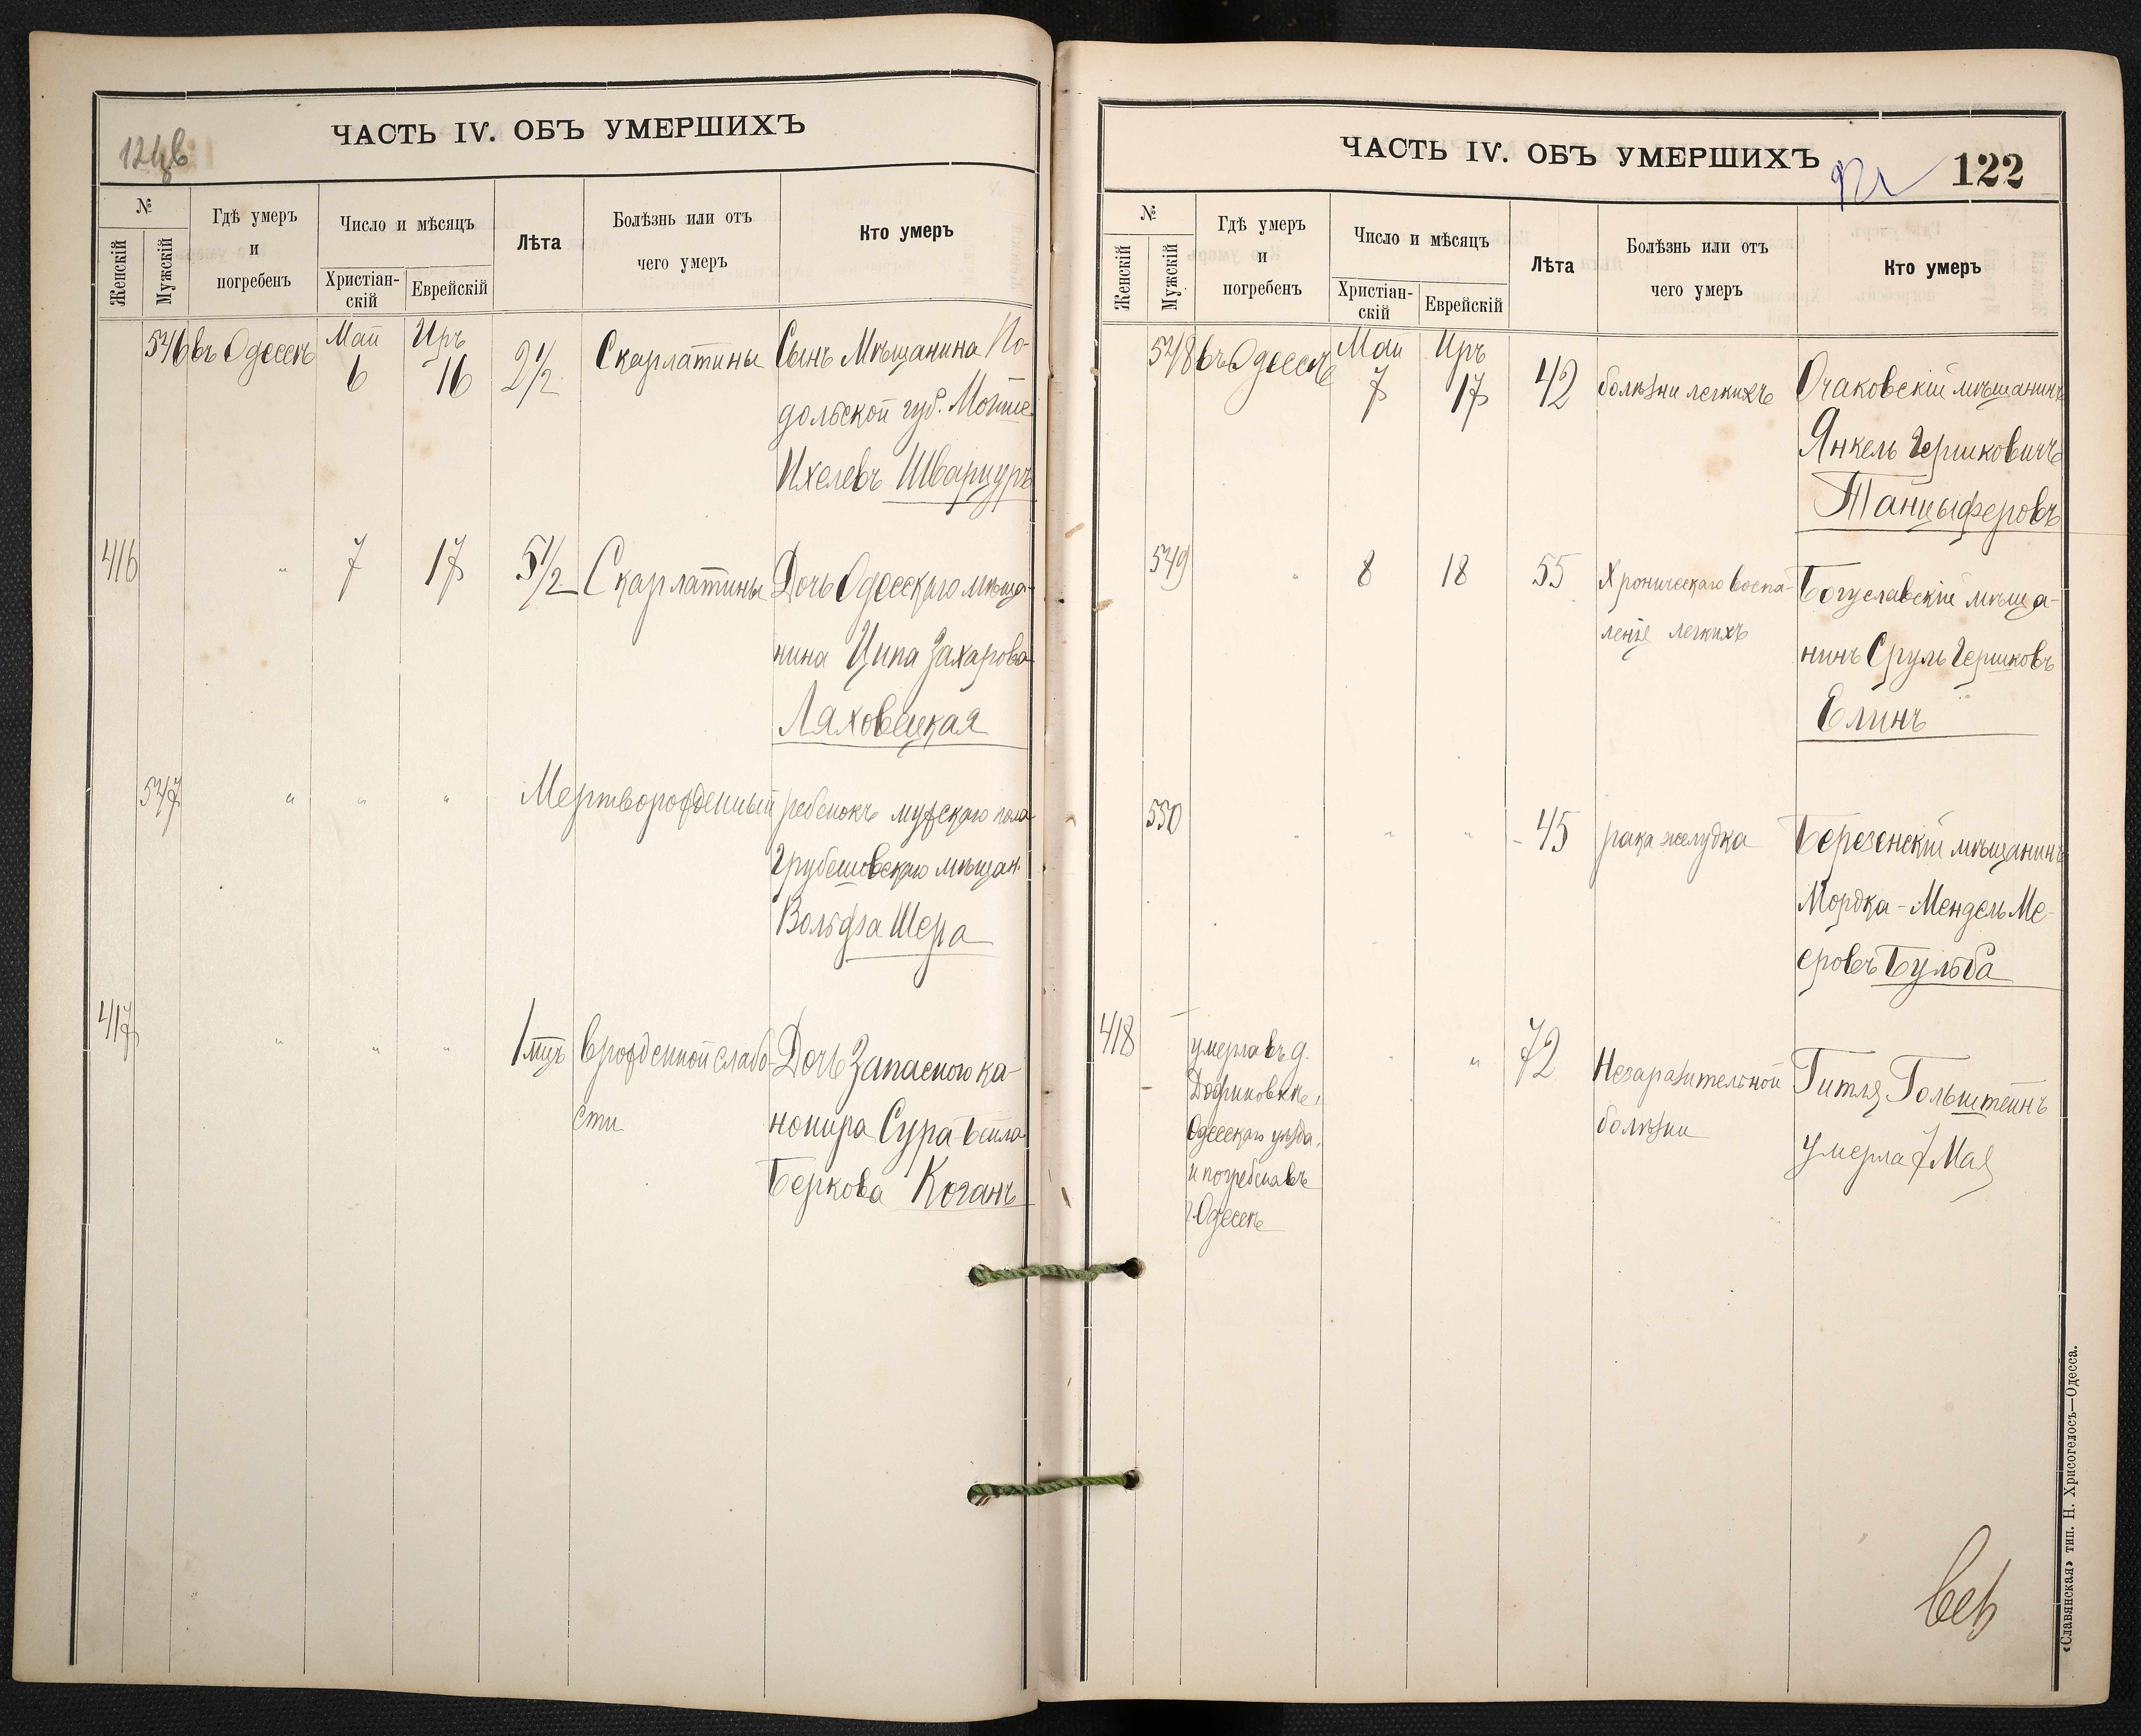 ЧАСТЬ IV. ОБЪ УМЕРШИХЪ
№
Женскій
Мужскій
Гдѣ умеръ
и
погребенъ
Число и мѣсяцъ
Христіан-
скій
Еврейскій
Лѣта
Болѣзнь или отъ
чего умеръ
Кто умеръ
546 въ Одессѣ Май 6 Иръ 16 2½ Скарлатины Сынъ Мѣщанина По-
дольской губ. Мойше
Ихелевъ Шварцуръ
416 " 7 17 5½ Скарлатины Дочь Одесскаго мѣща-
нина Ципа Захарова
Ляховецкая
547 " " " Мертворожденный ребенокъ мужскаго пола
Грубешовскаго мѣщан.
Вольфа Шера
417 " " " 1 мцъ врожденной слабо- Дочь Запасного ка-
сти нонира Сура-Бейла
Беркова Коганъ
ЧАСТЬ IV. ОБЪ УМЕРШИХЪ
122
№
Женскій
Мужскій
Гдѣ умеръ
и
погребенъ
Число и мѣсяцъ
Христіан-
скій
Еврейскій
Лѣта
Болѣзнь или отъ
чего умеръ
Кто умеръ
548 въ Одессѣ Май 7 Иръ 17 42 болѣзни легкихъ Очаковскій мѣщанинъ
Янкель Гершковичъ
Танцыферовъ
549 " 8 18 55 Хроническаго воспа- Богуславскій мѣща-
леніе легкихъ нинъ Сруль Гершковъ
Елинъ
550 " " " 45 рака желудка Березенскій мѣщанинъ
Мордка-Мендель Ме-
еровъ Бульба
418 умерла въ д. " " 72 Незаразительной Гитля Гольштейнъ
Дофиновкѣ, болѣзни умерла 7 Мая
Одесскаго уѣзда,
и погребена въ
г. Одессѣ
«Славянская» тип. Н. Хрисогелосъ—Одесса.